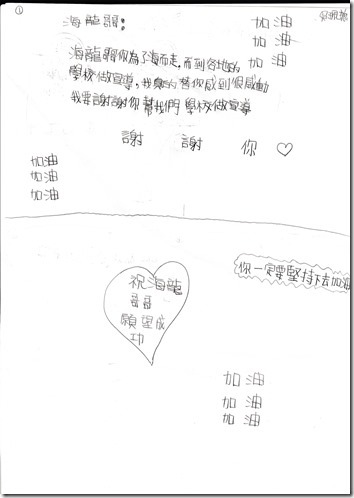 ①
海龍哥：
加油
加油
加油
海龍哥你為了海而走，而到各地的
學校做宣導，我真的替你感到很感動
我要謝謝你幫我們學校做宣導
謝 謝 你 ♡
加油
加油
加油
你一定要堅持下去加油
祝海龍
哥哥
願望成
功
加油
加油
加油